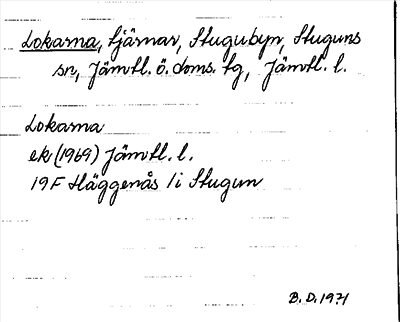 Lokarna, tjärnar, Stugubyn, Stuguns
sn, Jämtl. ö. doms. tg, Jämtl. l.
Lokarna
ek (1969) Jämtl. l.
19F Häggenås 1i Stugun
B. D. 1971